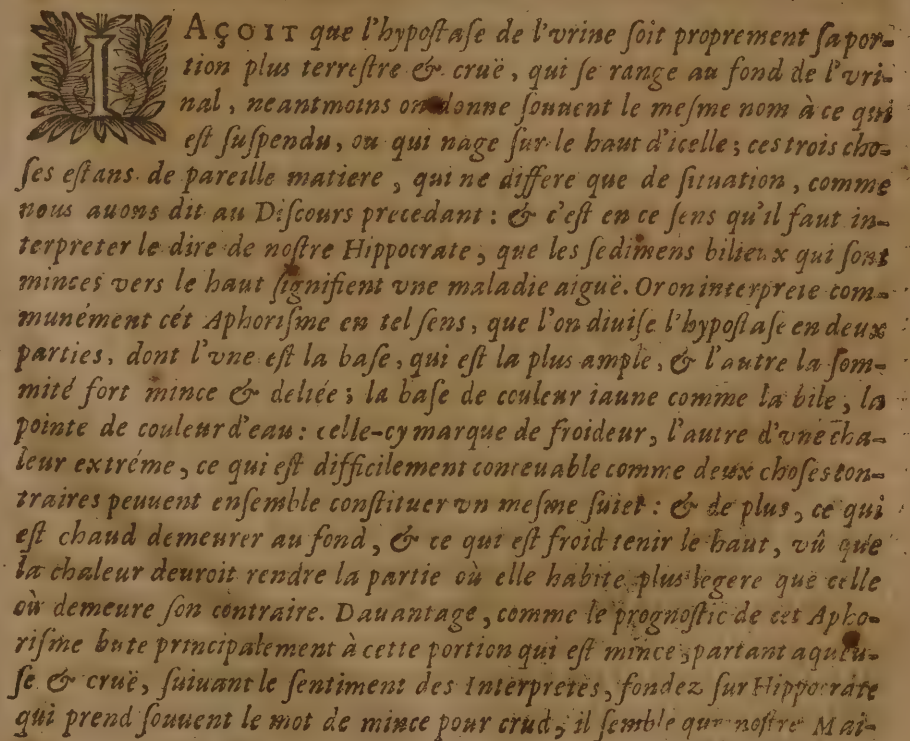 IAÇOIT que l'hypoſtaſe de l'vrine ſoit proprement ſa por-
tion plus terreſtre & cruë, qui ſe range au fond de l'vri-
nal, neantmoins on donne ſouuent le meſme nom à ce qui
eſt ſuſpendu, ou qui nage ſur le haut d'icelle; ces trois cho-
ſes eſtans de pareille matiere, qui ne differe que de ſituation, comme
nous auons dit au Diſcours precedant: & c'eſt en ce ſens qu'il faut in-
terpreter le dire de noſtre Hippocrate, que les ſedimens bilieux qui ſont
minces vers le haut ſignifient vne maladie aiguë. Or on interprete com-
munément cét Aphoriſme en tel ſens, que l'on diuiſe l'hypoſtaſe en deux
parties, dont l'vne eſt la baſe, qui eſt la plus ample, & l'autre la ſom-
mité fort mince & deliée; la baſe de couleur iaune comme la bile, la
pointe de couleur d'eau: celle-cy marque de froideur, l'autre d'vne cha-
leur extréme, ce qui eſt difficilement conceuable comme deux choſes con-
traires peuuent enſemble conſtituer vn meſme ſuiet: & de plus, ce qui
eſt chaud demeurer au fond, & ce qui eſt froid tenir le haut, vû que
la chaleur deuroit rendre la partie où elle habite plus legere que celle
où demeure ſon contraire. Dauantage, comme le prognoſtic de cet Apho-
riſme bute principalement à cette portion qui eſt mince, partant aqueu-
ſe & cruë, ſuiuant le ſentiment des Interpretes, fondez ſur Hippocrate
qui prend ſouuent le mot de mince pour crud, il ſemble que noſtre Mai-